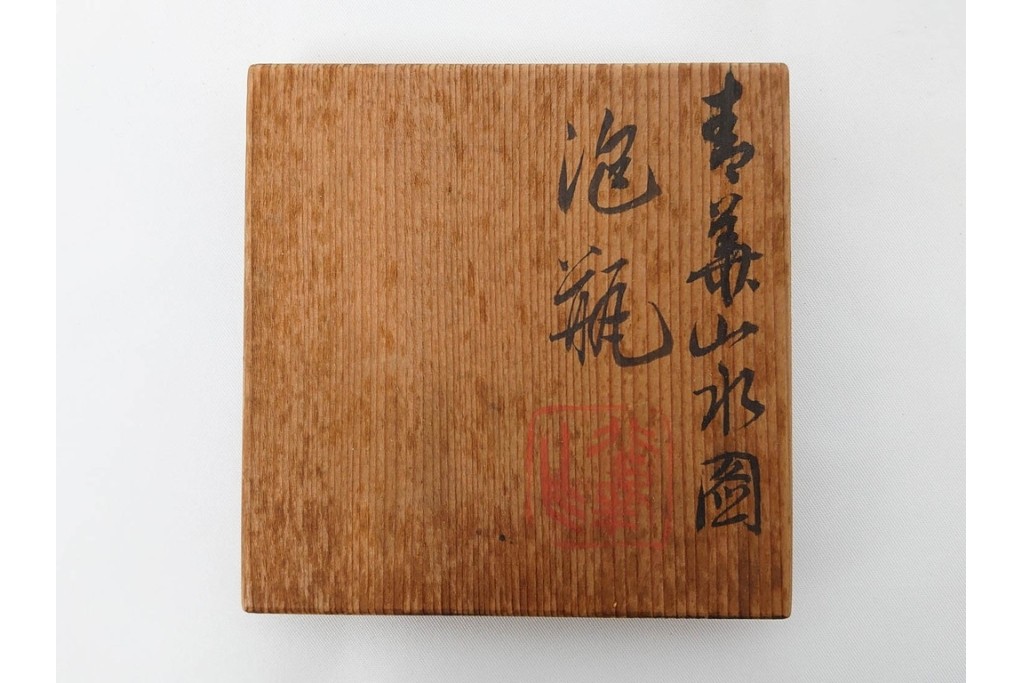 青華山水圖
泡瓶